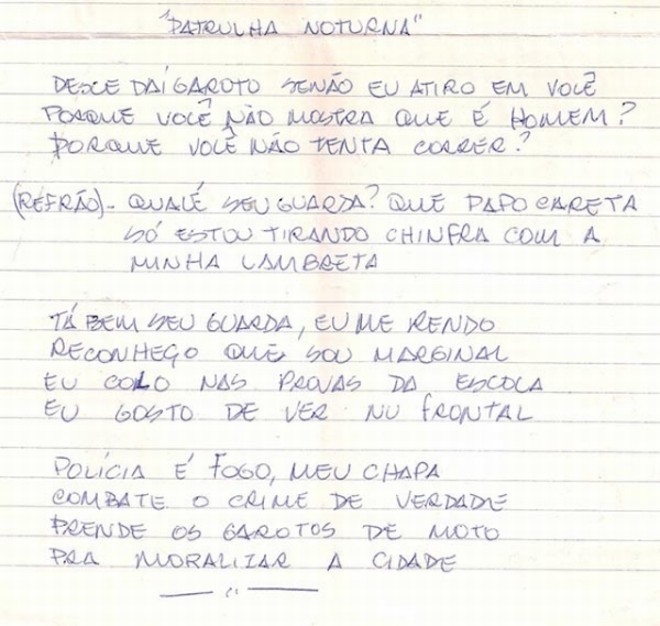 "PATRULHA NOTURNA"
DESCE DAÍ GAROTO SENÃO EU ATIRO EM VOCÊ
PORQUE VOCÊ NÃO MOSTRA QUE É HOMEM?
PORQUE VOCÊ NÃO TENTA CORRER?
(REFRÃO) - QUALÉ SEU GUARDA? QUE PAPO CARETA
SÓ ESTOU TIRANDO CHINFRA COM A
MINHA LAMBRETA
TÁ BEM SEU GUARDA, EU ME RENDO
RECONHEÇO QUE SOU MARGINAL
EU COLO NAS PROVAS DA ESCOLA
EU GOSTO DE VER NU FRONTAL
POLÍCIA É FOGO, MEU CHAPA
COMBATE O CRIME DE VERDADE
PRENDE OS GAROTOS DE MOTO
PRA MORALIZAR A CIDADE